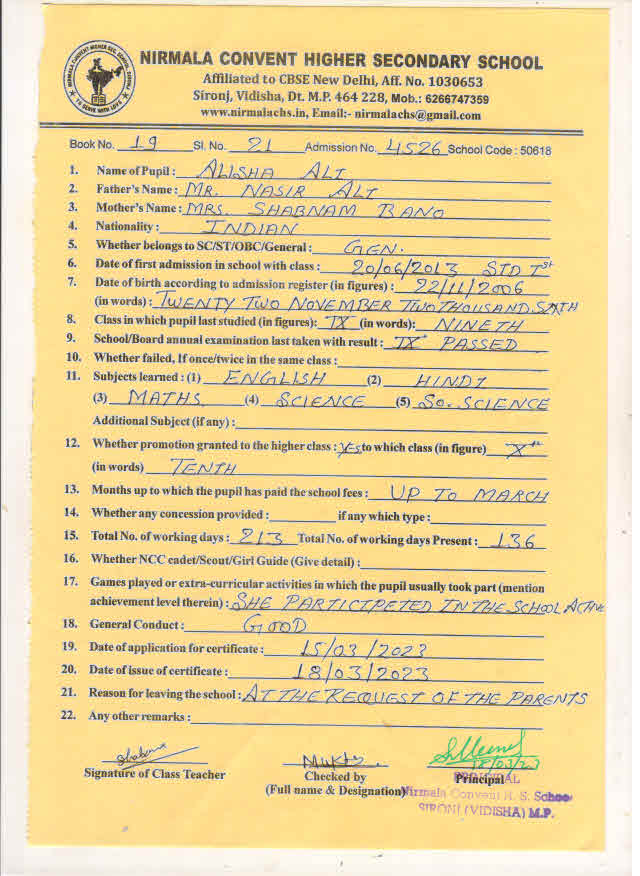 NIRMALA CONVENT HIGHER SECONDARY SCHOOL
Affiliated to CBSE New Delhi, Aff. No. 1030653
Sironj, Vidisha, Dt. M.P. 464 228, Mob.: 6266747359
www.nirmalachs.in, Email:- nirmalachs@gmail.com
Book No. 19 Sl. No. 21 Admission No. 4526 School Code : 50618
1. Name of Pupil : ALISHA ALI
2. Father's Name : MR. NASIR ALI
3. Mother's Name : MRS. SHABNAM BANO
4. Nationality : INDIAN
5. Whether belongs to SC/ST/OBC/General : GEN.
6. Date of first admission in school with class : 20/06/2013 STD Ist
7. Date of birth according to admission register (in figures) : 22/11/2006
(in words) : TWENTY TWO NOVEMBER TWO THOUSAND SIXTH
8. Class in which pupil last studied (in figures): IX (in words): NINETH
9. School/Board annual examination last taken with result : IX PASSED
10. Whether failed, If once/twice in the same class :
11. Subjects learned : (1) ENGLISH (2) HINDI
(3) MATHS (4) SCIENCE (5) So. SCIENCE
Additional Subject (if any) :
12. Whether promotion granted to the higher class : Yes to which class (in figure) Xth
(in words) TENTH
13. Months up to which the pupil has paid the school fees : UP TO MARCH
14. Whether any concession provided : if any which type :
15. Total No. of working days : 213 Total No. of working days Present : 136
16. Whether NCC cadet/Scout/Girl Guide (Give detail) :
17. Games played or extra-curricular activities in which the pupil usually took part (mention
achievement level therein) : SHE PARTICIPETED IN THE SCHOOL ACTIVE
18. General Conduct : GOOD
19. Date of application for certificate : 15/03/2023
20. Date of issue of certificate : 18/03/2023
21. Reason for leaving the school : AT THE REQUEST OF THE PARENTS
22. Any other remarks :
18/03/23
Signature of Class Teacher Checked by Principal
(Full name & Designation)
PRINCIPAL
Nirmala Convent H. S. School
SIRONJ (VIDISHA) M.P.